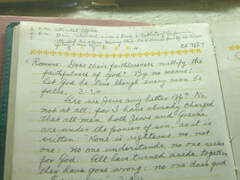 Romans: Does their faithlessness nullify the
faithfulness of God? By no means!
Let God be true though every man be
false, 3:20
Are we Jews any better off? No
not at all; for I have already charged
that all men, both Jews and Greeks
are under the power of sin as it is
written: "None is righteous, no, not
one; no one understands, no one seeks
for God. All have turned aside, together
they have gone wrong; no one does good